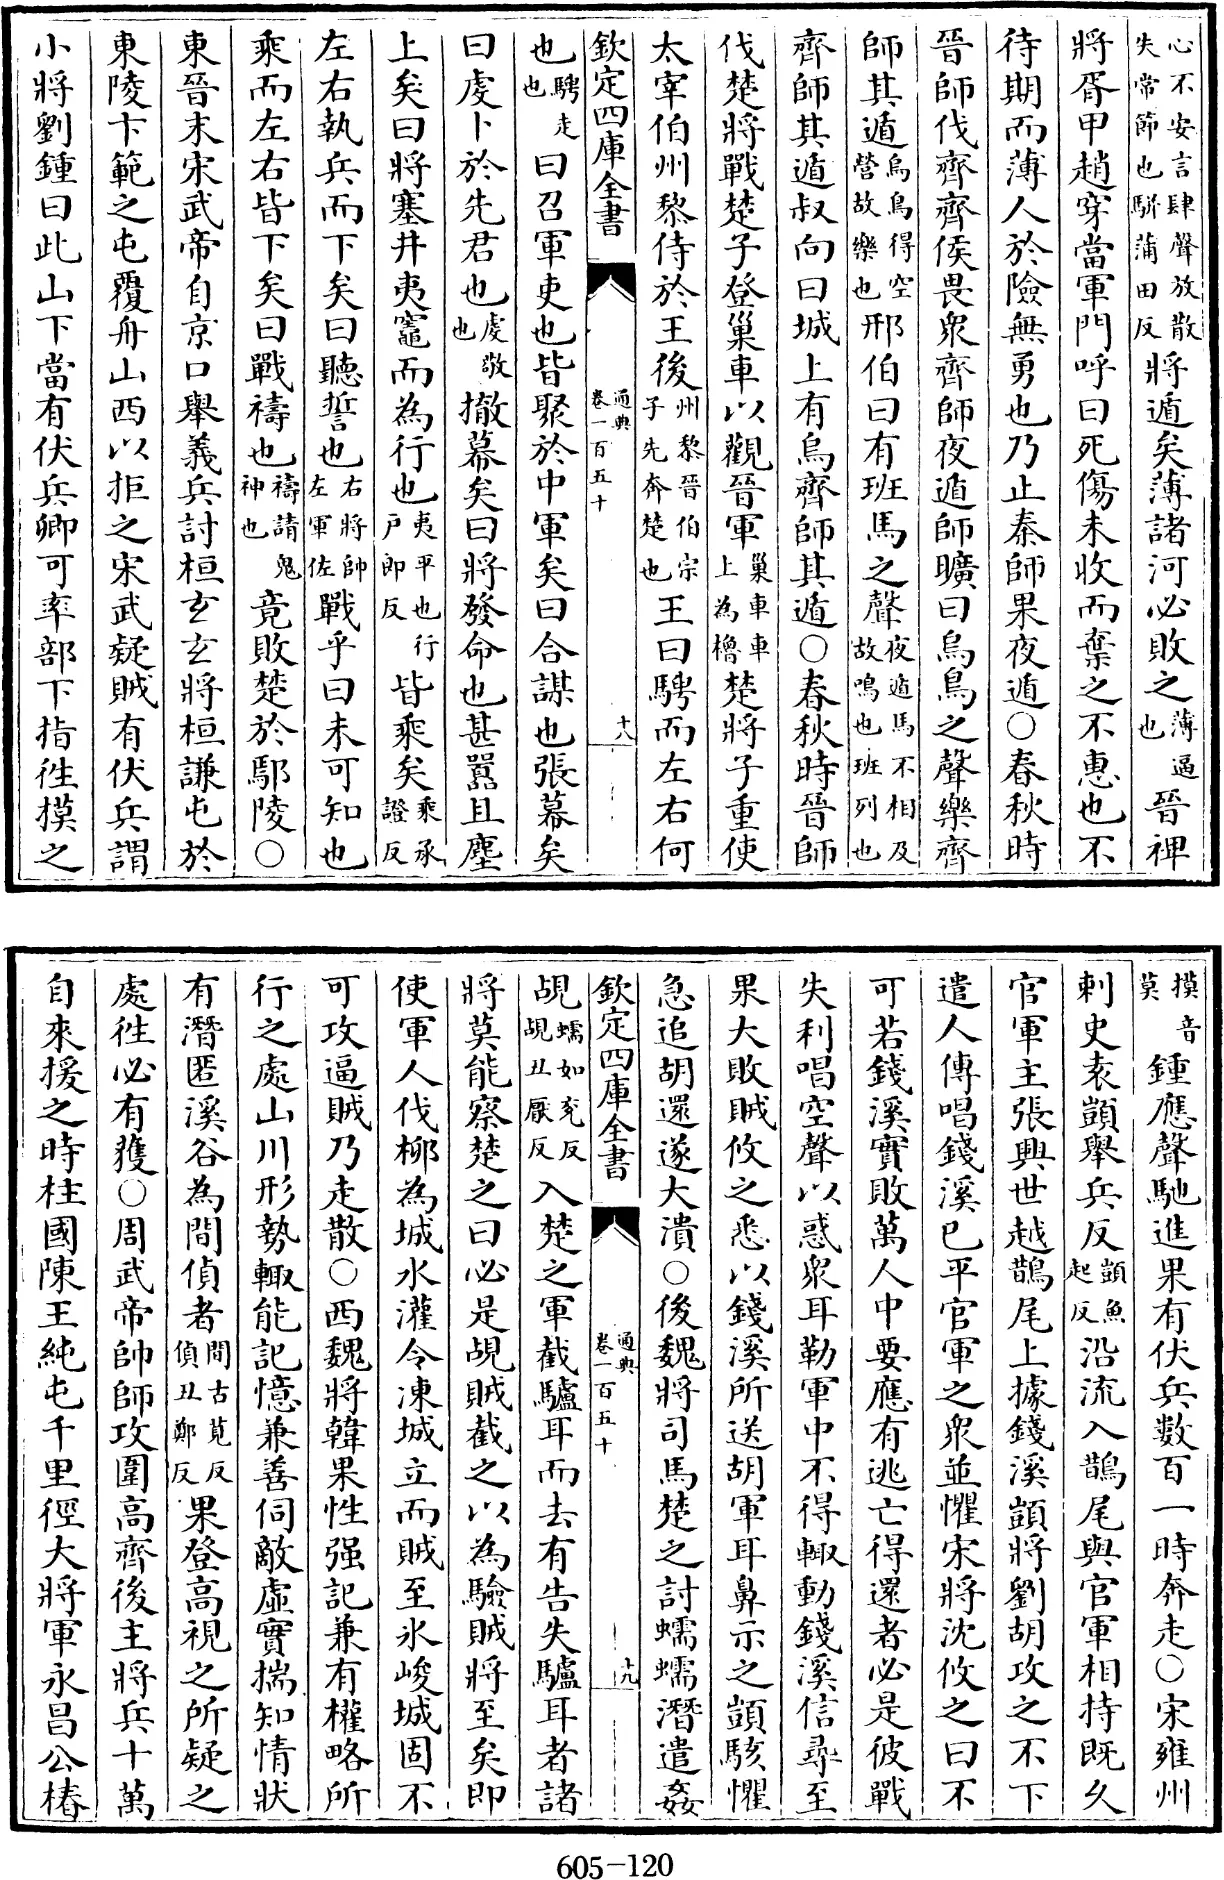 心不安言肆聲放散失常節也駢蒲田反將遁矣薄諸河必敗之薄逼也晉裨
將胥甲趙穿當軍門呼曰死傷未收而棄之不惠也不
待期而薄人於險無勇也乃止秦師果夜遁〇春秋時
晉師伐齊齊侯畏衆齊師夜遁師曠曰烏烏之聲樂齊
師其遁烏烏得空營故樂也邢伯曰有班馬之聲夜遁馬不相及故鳴也班列也
齊師其遁叔向曰城上有烏齊師其遁〇春秋時晉師
伐楚將戰楚子登巢車以觀晉軍巢車車上為櫓楚將子重使
太宰伯州黎侍於王後州黎晉伯宗子先奔楚也王曰騁而左右何
欽定四庫全書
通典
卷一百五十
十八
也騁走也曰召軍吏也皆聚於中軍矣曰合謀也張幕矣
曰虔卜於先君也虔敬也撤幕矣曰將發命也甚囂且塵
上矣曰將塞井夷竈而為行也夷平也行戶郎反皆乘矣乘承證反
左右執兵而下矣曰聽誓也右將帥左軍佐戰乎曰未可知也
乘而左右皆下矣曰戰禱也禱請鬼神也竟敗楚於鄢陵〇
東晉末宋武帝自京口舉義兵討桓玄玄將桓謙屯於
東陵卞範之屯覆舟山西以拒之宋武疑賊有伏兵謂
小將劉鍾曰此山下當有伏兵卿可率部下指徃摸之
摸音莫鍾應聲馳進果有伏兵數百一時奔走〇宋雍州
刺史袁顗舉兵反顗魚起反沿流入鵲尾與官軍相持既久
官軍主張興世越鵲尾上據錢溪顗將劉胡攻之不下
遣人傳唱錢溪已平官軍之衆並懼宋將沈攸之曰不
可若錢溪實敗萬人中要應有逃亡得還者必是彼戰
失利唱空聲以惑衆耳勒軍中不得輙動錢溪信尋至
果大敗賊攸之悉以錢溪所送胡軍耳鼻示之顗駭懼
急追胡還遂大潰〇後魏將司馬楚之討蠕蠕潛遣姦
欽定四庫全書
通典
卷一百五十
十九
覘蠕如兖反覘丑厭反入楚之軍截驢耳而去有告失驢耳者諸
將莫能察楚之曰必是覘賊截之以為驗賊將至矣即
使軍人伐柳為城水灌令凍城立而賊至氷峻城固不
可攻逼賊乃走散〇西魏將韓果性强記兼有權略所
行之處山川形勢輙能記憶兼善伺敵虛實揣知情狀
有潛匿溪谷為間偵者間古莧反偵丑鄭反果登高視之所疑之
處徃必有獲〇周武帝帥師攻圍高齊後主將兵十萬
自來援之時柱國陳王純屯千里徑大將軍永昌公椿
605-120